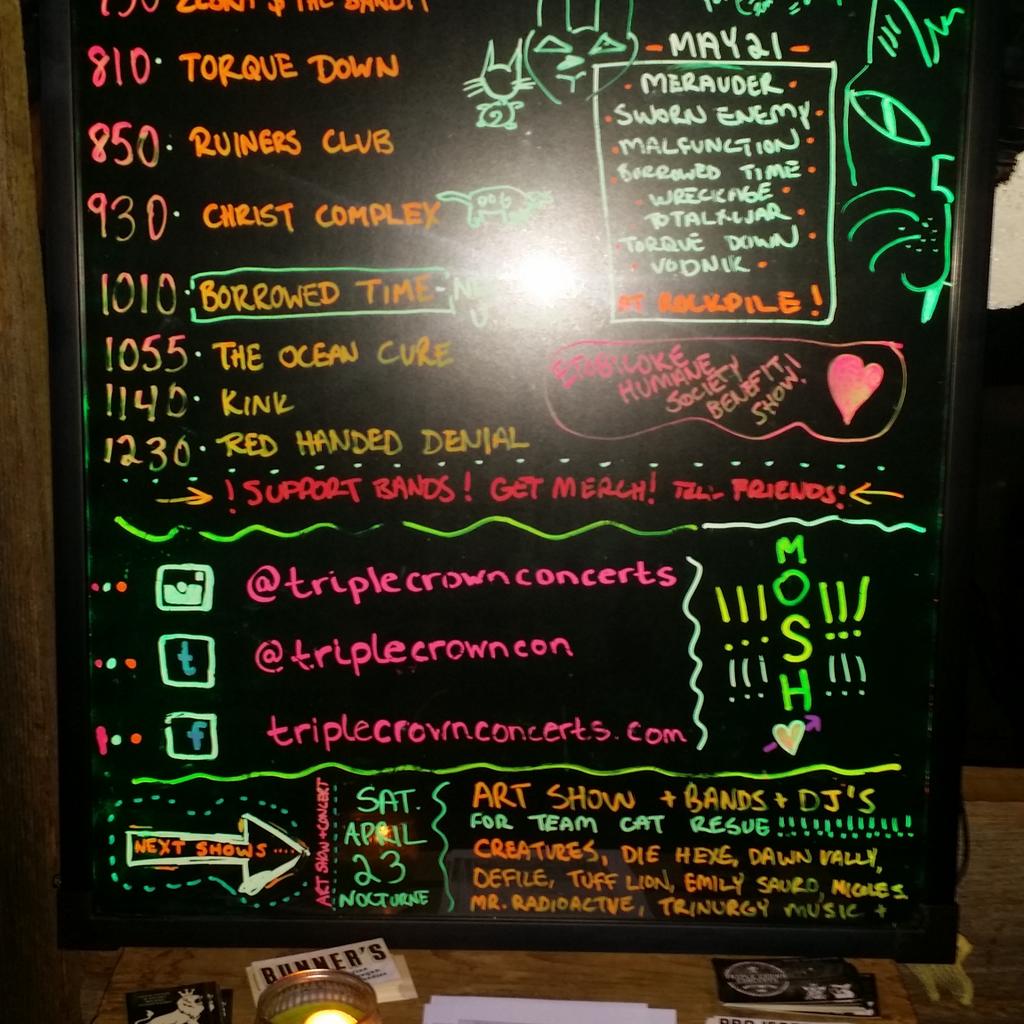 750 CLONY $ THE BANDIT
810· TORQUE DOWN
850· RUINERS CLUB
930· CHRIST COMPLEX
1010· BORROWED TIME
1055· THE OCEAN CURE
1140· KINK
1230· RED HANDED DENIAL
- MAY 21 -
· MERAUDER ·
· SWORN ENEMY ·
· MALFUNCTION ·
BORROWED TIME
· WRECKAGE ·
· TOTAL WAR ·
TORQUE DOWN
· VODNIK ·
AT ROCKPILE!
ETOBICOKE
HUMANE
SOCIETY
BENEFIT
SHOW!
! SUPPORT BANDS! GET MERCH! TELL FRIENDS!
@triplecrownconcerts
t @triplecrowncon
f triplecrownconcerts.com
MOSH
NEXT SHOWS ....
ART SHOW + CONCERT
SAT.
APRIL
23
NOCTURNE
ART SHOW + BANDS + DJ'S
FOR TEAM CAT RESUE !!!!!!!!!!!
CREATURES, DIE HEXE, DAWN VALLY,
DEFILE, TUFF LION, EMILY SAURO, NICOLES
MR. RADIOACTVE, TRINURGY MUSIC +
BUNNER'S